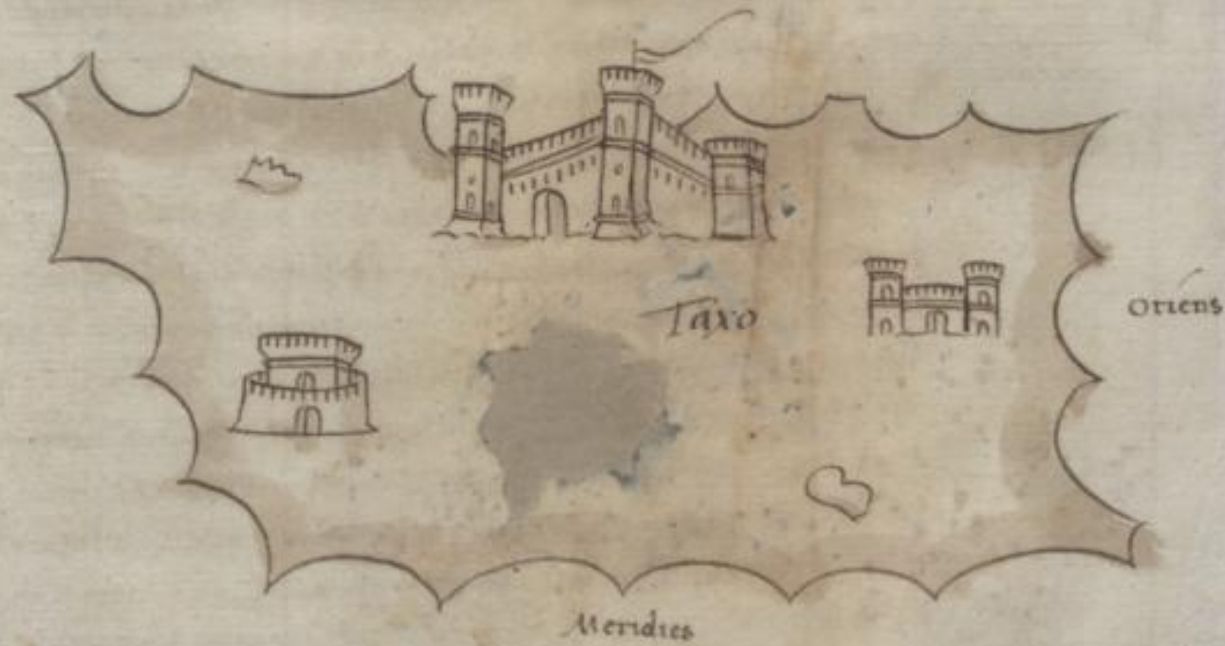 Taxo
Oriens
Meridies